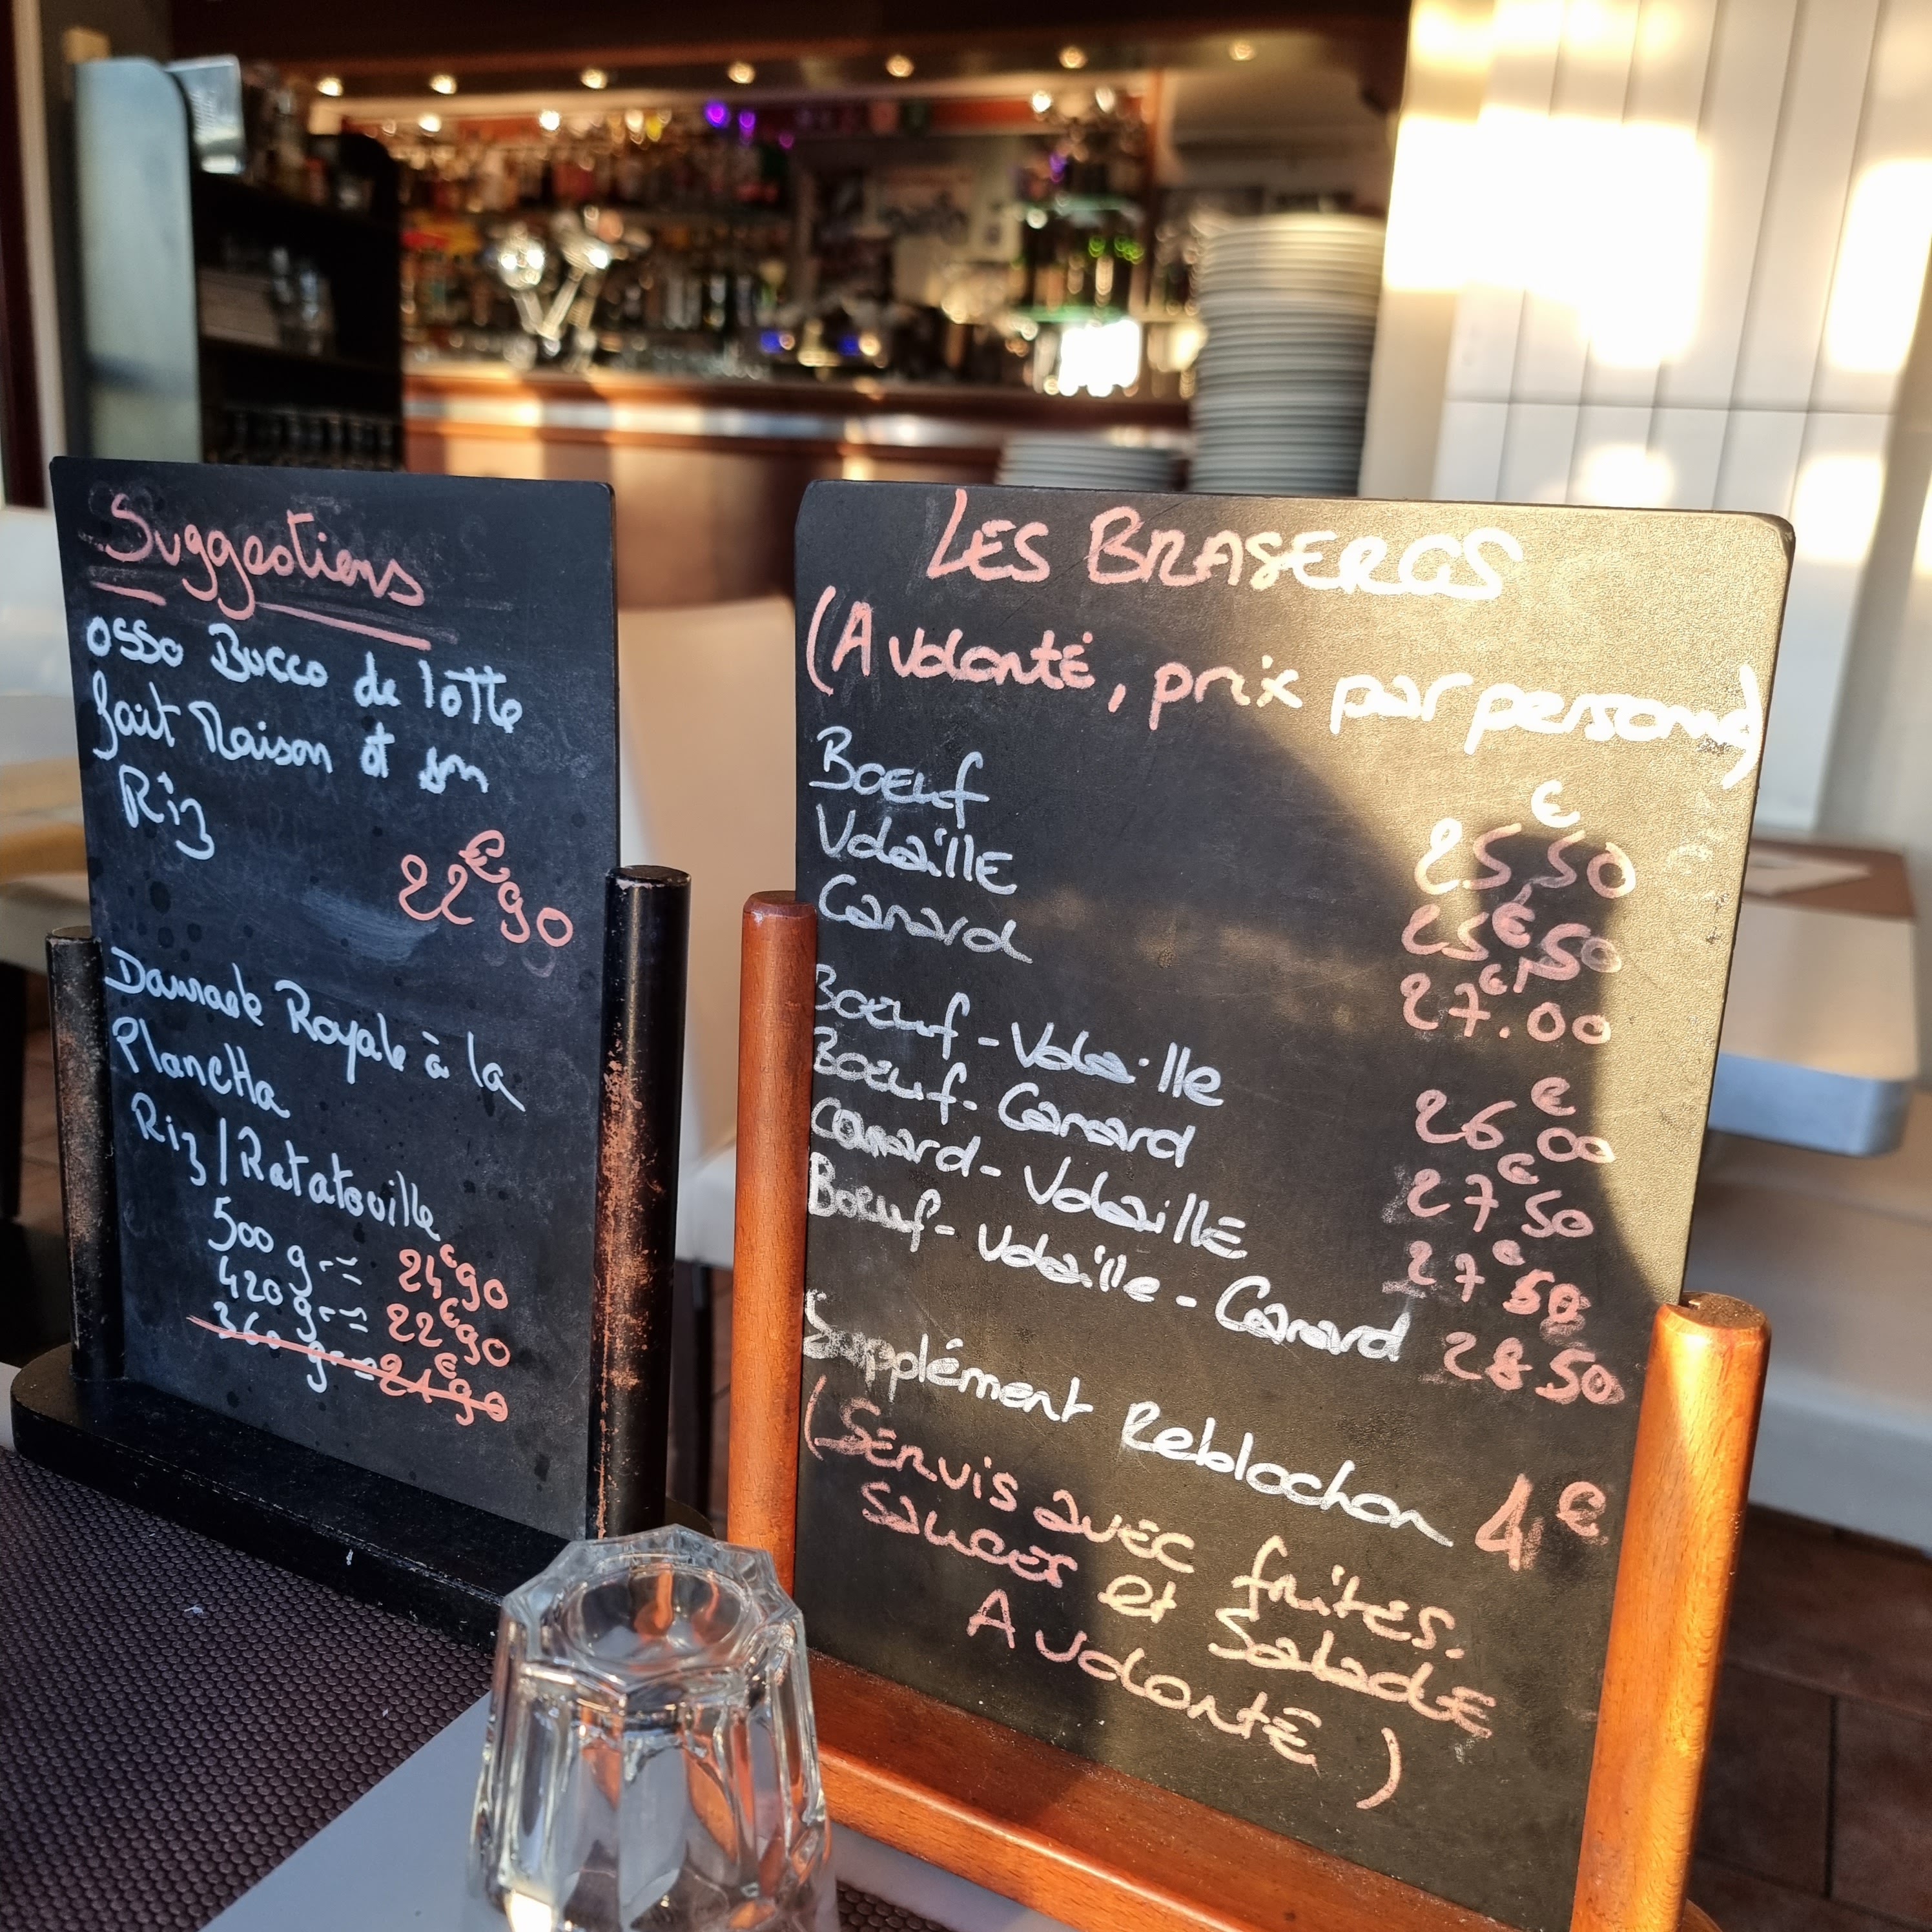 Suggestions
Osso Bucco de lotte
fait Maison et son
Riz
22€90
Daurade Royale à la
Plancha
Riz/Ratatouille
500 g = 24€90
420 g = 22€90
360 g = 21€90
LES BRASERGS
(A volonté, prix par personne)
Boeuf 25€50
Volaille 25€50
Canard 27€.00
Boeuf - Volaille 26€00
Boeuf - Canard 27€50
Canard - Volaille 27€50
Boeuf - Volaille - Canard 28 50
Supplément Reblochon 4€
(Servis avec frites.
sauces et Salade
A volonté)